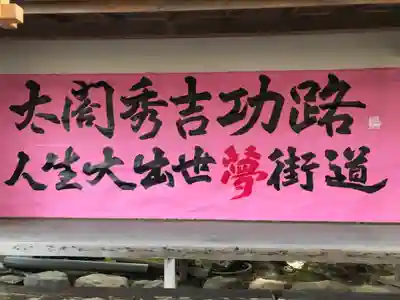 太閤秀吉功路
人生大出世夢街道